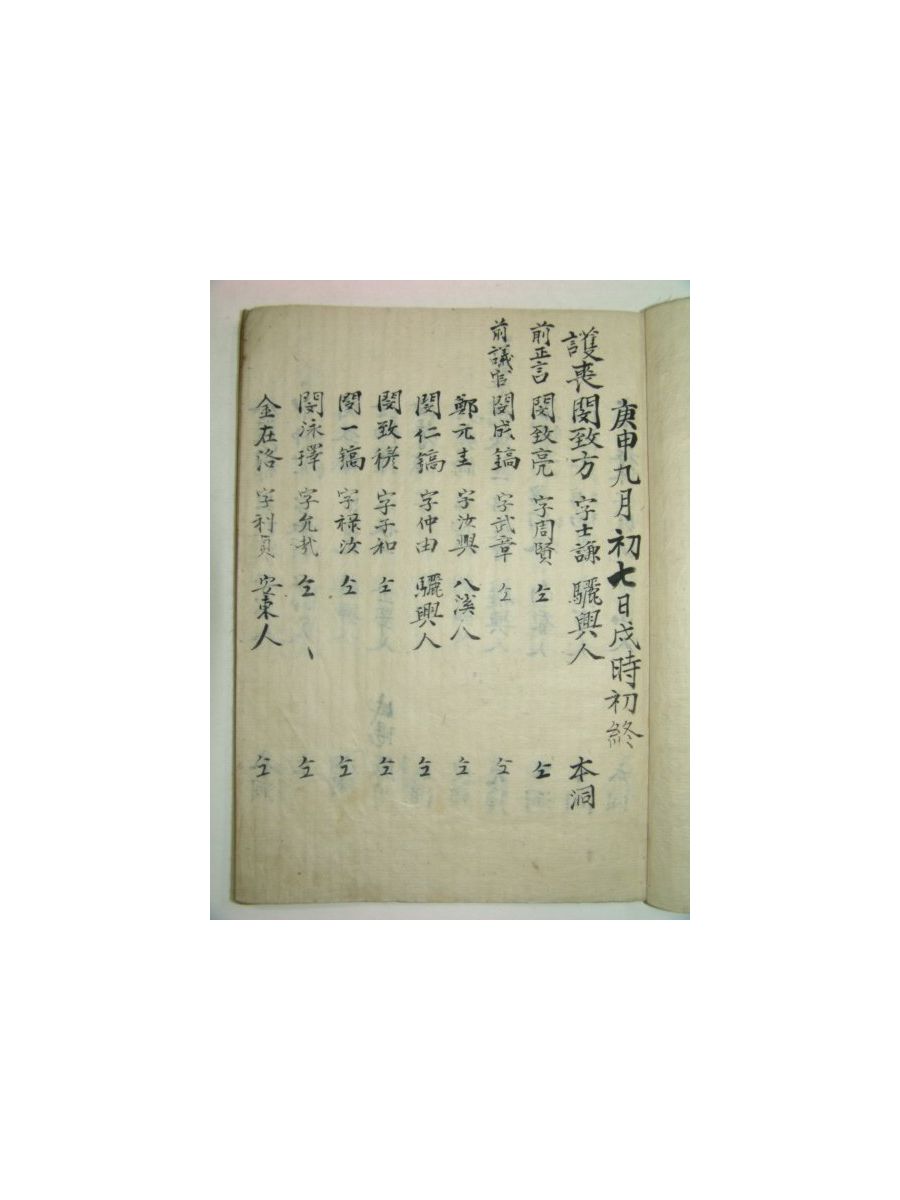 庚申九月初七日戌時初終
護喪 閔致方 字士謙 驪興人 本洞
前正言 閔致亮 字周賢 仝 仝
前議官 閔成鎬 字武章 仝 仝
鄭元圭 字汝興 八溪人 仝
閔仁鎬 字仲由 驪興人 仝
閔致 字子和 仝 仝
閔一鎬 字祿汝 仝 仝
閔泳琸 字允哉 仝 仝
金在洛 字利貞 安東人 仝